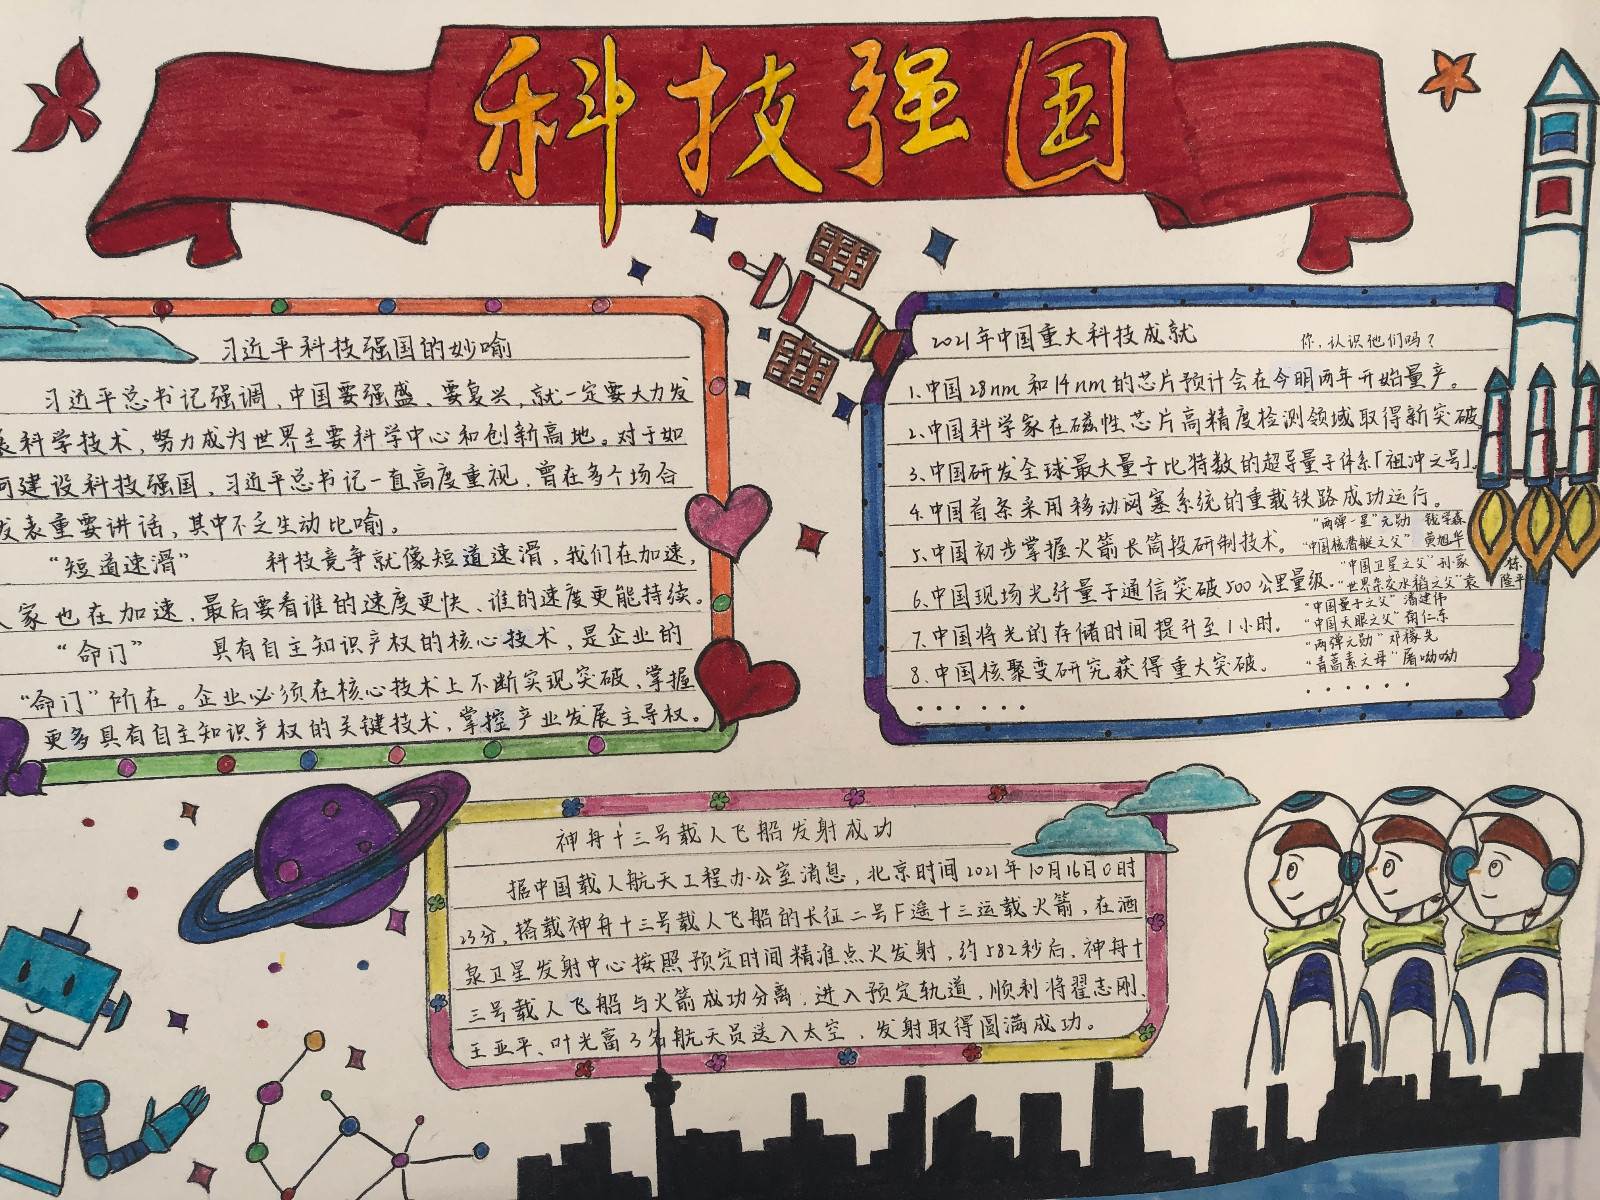 科技强国
习近平科技强国的妙喻
习近平总书记强调,中国要强盛、要复兴,就一定要大力发
展科学技术,努力成为世界主要科学中心和创新高地。对于如
何建设科技强国,习近平总书记一直高度重视,曾在多个场合
发表重要讲话,其中不乏生动比喻。
“短道速滑” 科技竞争就像短道速滑,我们在加速,
人家也在加速,最后要看谁的速度更快、谁的速度更能持续。
“命门” 具有自主知识产权的核心技术,是企业的
“命门”所在。企业必须在核心技术上不断实现突破,掌握
更多具有自主知识产权的关键技术,掌控产业发展主导权。
2021年中国重大科技成就
1.中国28nm和14nm的芯片预计会在今明两年开始量产。
2.中国科学家在磁性芯片高精度检测领域取得新突破
3.中国研发全球最大量子比特数的超导量子体系「祖冲之号」。
4.中国首条采用移动闭塞系统的重载铁路成功运行。
5.中国初步掌握火箭长筒段研制技术。
6.中国现场光纤量子通信突破500公里量级。
7.中国将光的存储时间提升至1小时。
8.中国核聚变研究获得重大突破。
······
你,认识他们吗?
“两弹一星”元勋 钱学森
“中国核潜艇之父” 黄旭华
“中国卫星之父” 孙家栋
“世界杂交水稻之父” 袁隆平
“中国量子之父” 潘建伟
“中国天眼之父” 南仁东
“两弹元勋” 邓稼先
“青蒿素之母” 屠呦呦
······
神舟十三号载人飞船发射成功
据中国载人航天工程办公室消息,北京时间2021年10月16日0时
23分,搭载神舟十三号载人飞船的长征二号F遥十三运载火箭,在酒
泉卫星发射中心按照预定时间精准点火发射,约582秒后,神舟十
三号载人飞船与火箭成功分离,进入预定轨道,顺利将翟志刚、
王亚平、叶光富3名航天员送入太空,发射取得圆满成功。